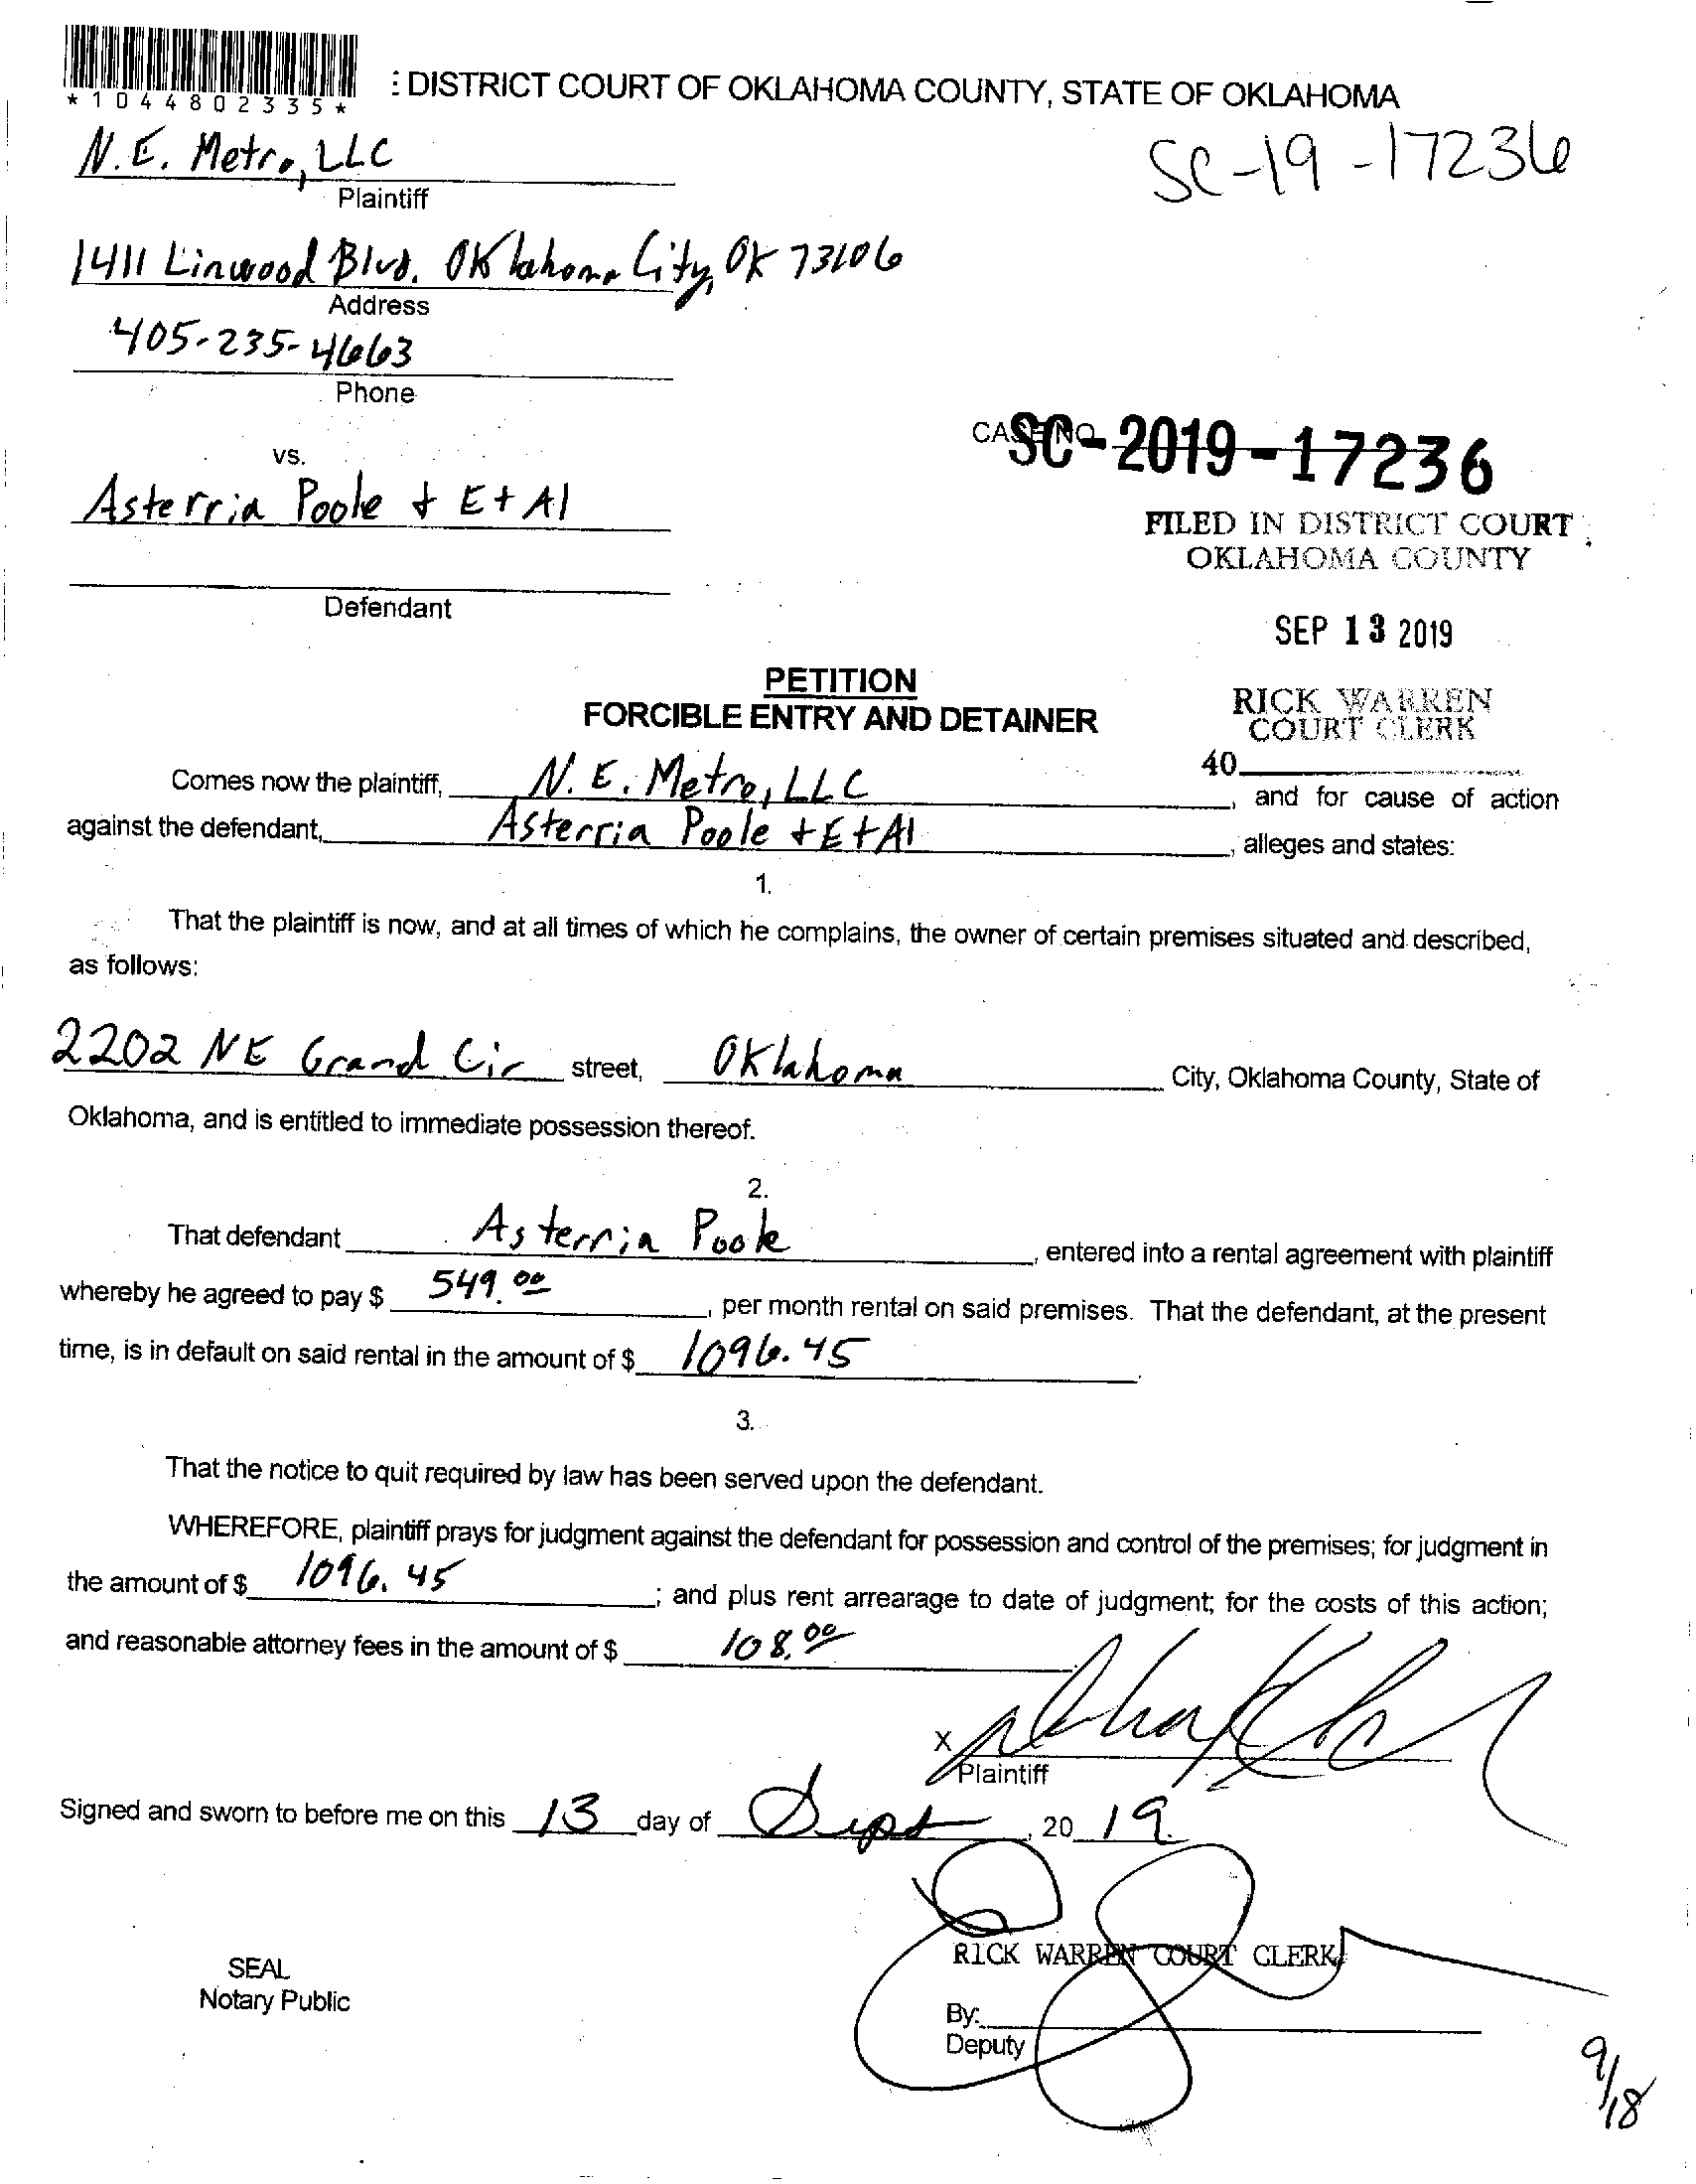 *1044802335*
: DISTRICT COURT OF OKLAHOMA COUNTY, STATE OF OKLAHOMA
N.E. Metro, LLC
Plaintiff
SC-19-17236
1411 Linwood Blvd. Oklahoma City, OK 73106
Address
405-235-4663
Phone
CASE NO.
SC-2019-17236
vs.
Asterria Poole + Et Al
Defendant
FILED IN DISTRICT COURT
OKLAHOMA COUNTY
SEP 13 2019
RICK WARREN
COURT CLERK
40
PETITION
FORCIBLE ENTRY AND DETAINER
Comes now the plaintiff, N.E. Metro, LLC, and for cause of action
against the defendant, Asterria Poole + Et Al, alleges and states:
1.
That the plaintiff is now, and at all times of which he complains, the owner of certain premises situated and described,
as follows:
2202 NE Grand Cir street, Oklahoma City, Oklahoma County, State of
Oklahoma, and is entitled to immediate possession thereof.
2.
That defendant Asterria Poole, entered into a rental agreement with plaintiff
whereby he agreed to pay $ 549.00, per month rental on said premises. That the defendant, at the present
time, is in default on said rental in the amount of $ 1096.45.
3.
That the notice to quit required by law has been served upon the defendant.
WHEREFORE, plaintiff prays for judgment against the defendant for possession and control of the premises; for judgment in
the amount of $ 1096.45; and plus rent arrearage to date of judgment; for the costs of this action;
and reasonable attorney fees in the amount of $ 108.00
X
Plaintiff
Signed and sworn to before me on this 13 day of Sept, 20 19.
SEAL
Notary Public
RICK WARREN COURT CLERK
By:
Deputy
9/18